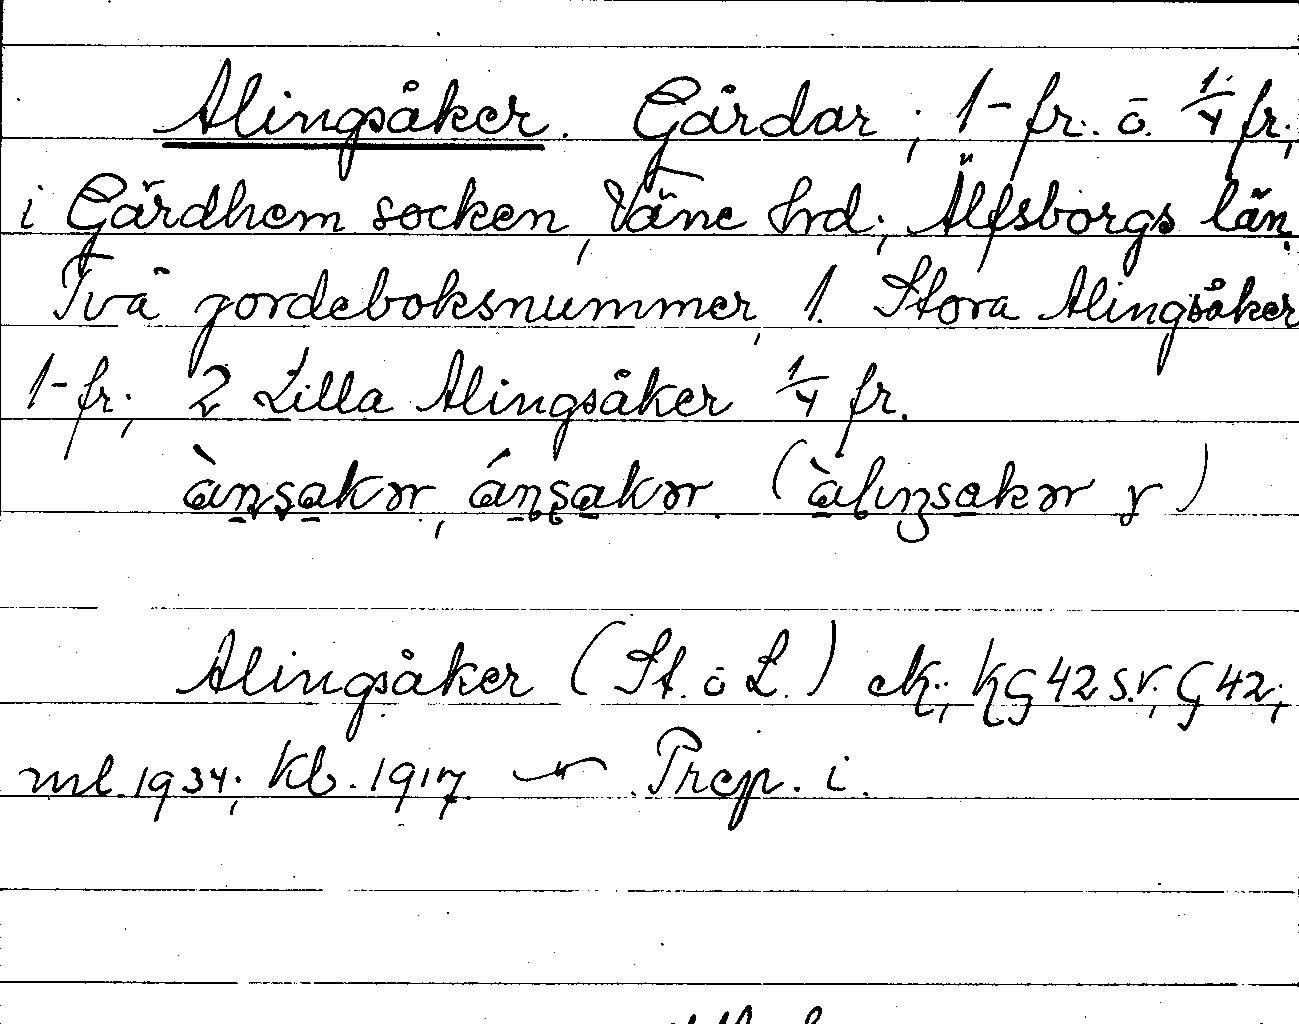 Alingsåker. Gårdar; 1- fr. o. 1/4 fr;
i Gärdhem socken, Väne hrd; Älfsborgs län.
Två jordeboksnummer, 1. Stora Alingsåker
1- fr; 2 Lilla Alingsåker 1/4 fr.
ànsakər, ánsakər. (àlıŋsakər r)
Alingsåker (St. o L.) ek; kG 42 s.v; G 42;
ml. 1934; kb. 1917 Prep. i.